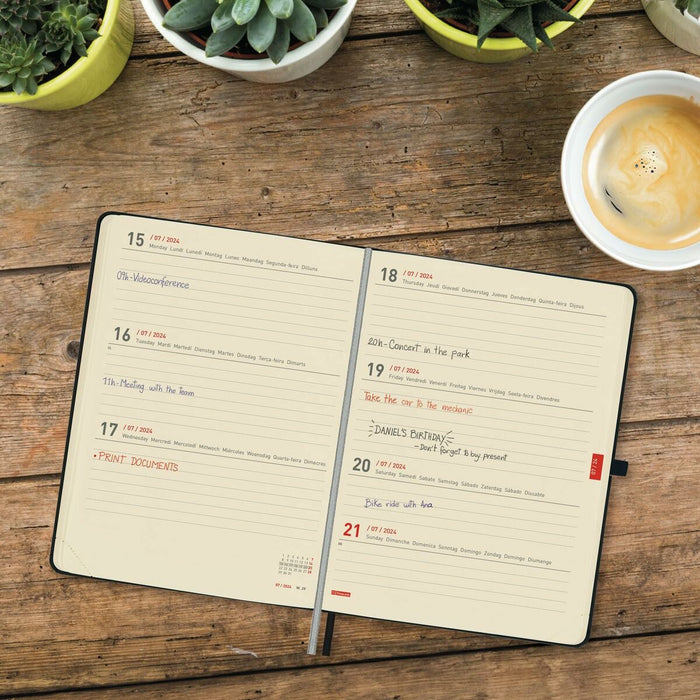 15 / 07 / 2024
Monday Lundi Lunedì Montag Lunes Maandag Segunda-feira Dilluns
09h-Videoconference
16 / 07 / 2024
Tuesday Mardi Martedì Dienstag Martes Dinsdag Terça-feira Dimarts
11h-Meeting with the team
17 / 07 / 2024
Wednesday Mercredi Mercoledì Mittwoch Miércoles Woensdag Quarta-feira Dimecres
• PRINT DOCUMENTS
07 / 2024 W. 29
18 / 07 / 2024
Thursday Jeudi Giovedì Donnerstag Jueves Donderdag Quinta-feira Dijous
20h-Concert in the park
19 / 07 / 2024
Friday Vendredi Venerdì Freitag Viernes Vrijdag Sexta-feira Divendres
Take the car to the mechanic
DANIEL'S BIRTHDAY
-Don't forget to buy present
20 / 07 / 2024
Saturday Samedi Sabato Samstag Sábado Zaterdag Sábado Dissabte
Bike ride with Ana
21 / 07 / 2024
Sunday Dimanche Domenica Sonntag Domingo Zondag Domingo Diumenge
07 / 24